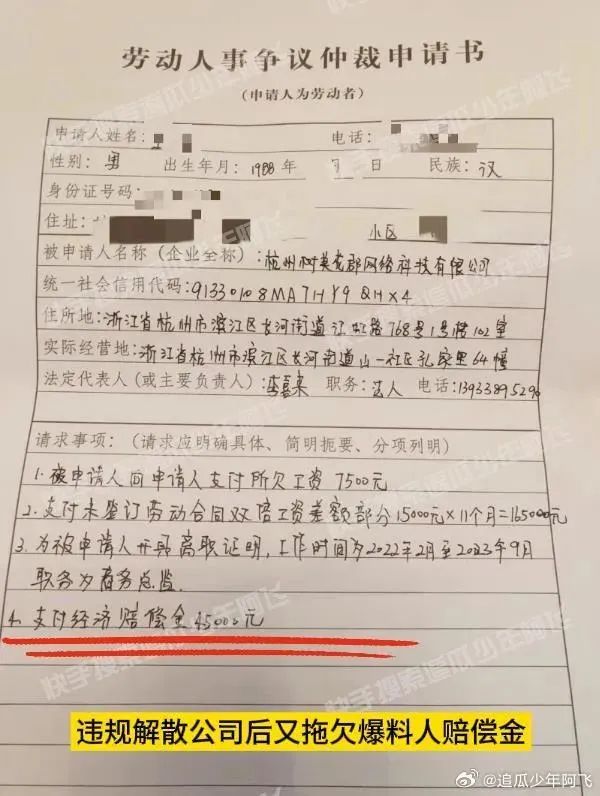 劳动人事争议仲裁申请书
(申请人为劳动者)
申请人姓名: 电话:
性别: 男 出生年月: 1988年 月 日 民族: 汉
身份证号码:
住址: 小区
被申请人名称(企业全称): 杭州树英戈郡网络科技有限公司
统一社会信用代码: 91330108MA7HY9QHX4
住所地: 浙江省杭州市滨江区长河街道江虹路768号1号楼102室
实际经营地: 浙江省杭州市滨江区长河街道山一社区孔家里64幢
法定代表人(或主要负责人): 李嘉来 职务: 法人 电话: 13933895296
请求事项: (请求应明确具体、简明扼要、分项列明)
1. 被申请人向申请人支付所欠工资 7500元
2. 支付未签订劳动合同双倍工资差额部分 15000元×11个月=165000元
3. 为被申请人开具离职证明, 工作时间为2022年2月至2023年9月
职务为商务总监.
4. 支付经济赔偿金 45000元
违规解散公司后又拖欠爆料人赔偿金
快手搜索追瓜少年阿飞
@追瓜少年阿飞